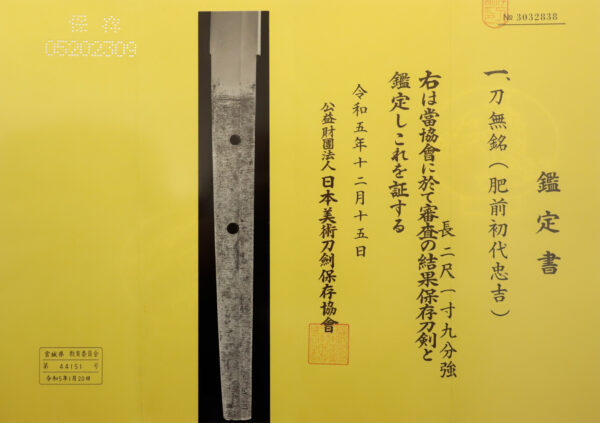 № 3032838
鑑定書
一、刀無銘(肥前初代忠吉)
長二尺一寸九分強
右は當協會に於て審査の結果保存刀剣と
鑑定しこれを証する
令和五年十二月十五日
公益財團法人 日本美術刀劍保存協會
保存
05202309
宮城県 教育委員会
第 44151 号
令和5年1月20日